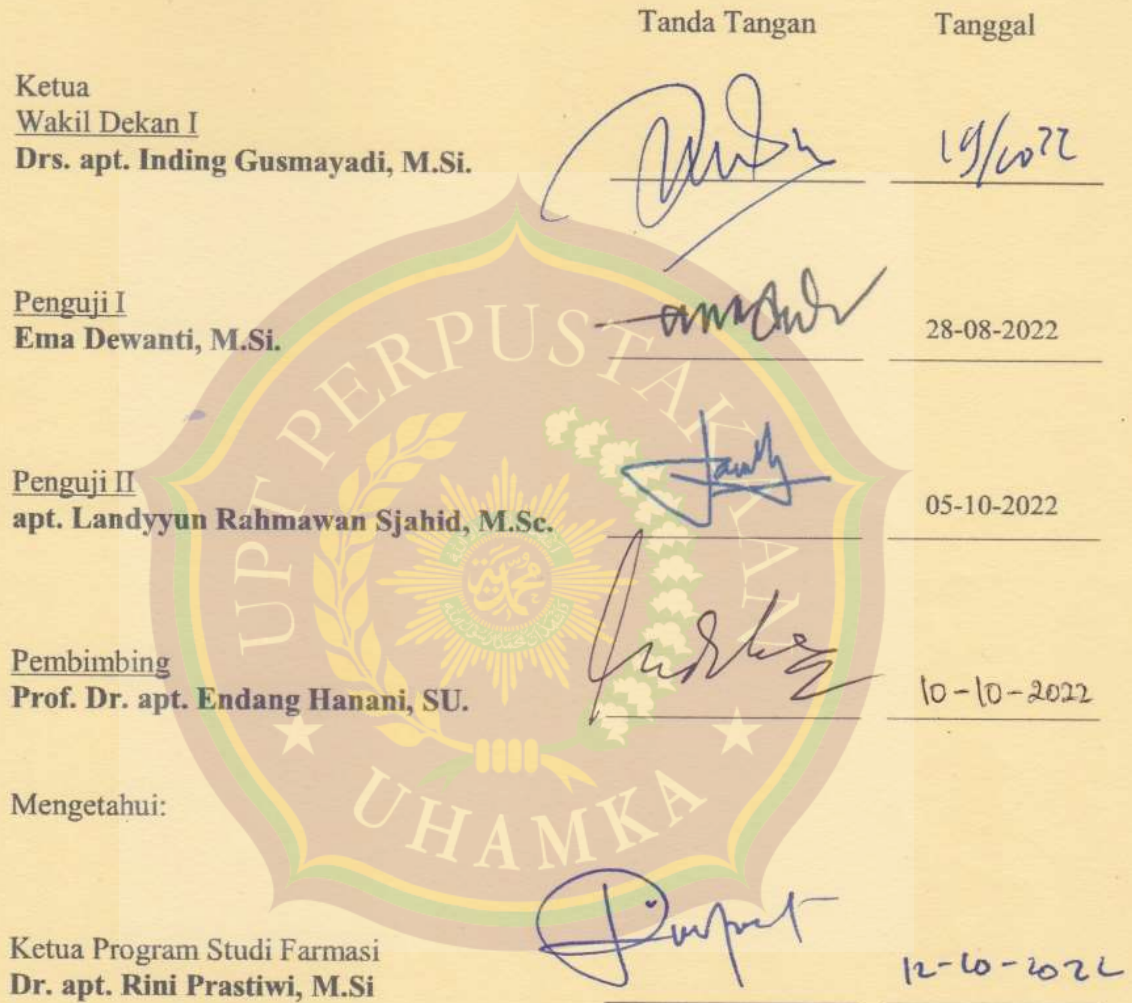 Tanda Tangan Tanggal
Ketua
Wakil Dekan I
Drs. apt. Inding Gusmayadi, M.Si.
Penguji I
Ema Dewanti, M.Si.
28-08-2022
Penguji II
apt. Landyyun Rahmawan Sjahid, M.Sc.
05-10-2022
Pembimbing
Prof. Dr. apt. Endang Hanani, SU.
10-10-2022
Mengetahui:
Ketua Program Studi Farmasi
Dr. apt. Rini Prastiwi, M.Si
12-10-2022
UPT PERPUSTAKAAN
UHAMKA